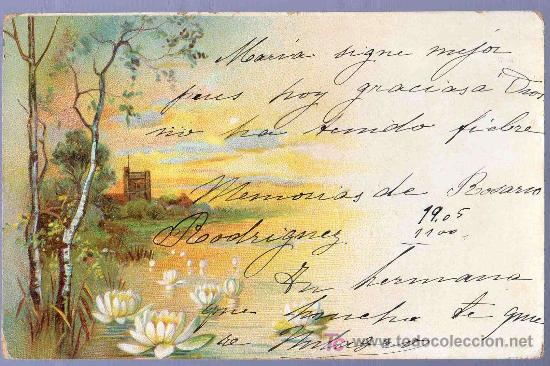 Maria sigue mejor
pues hoy gracias a Dios
no ha tenido fiebre
Memorias de Rosario
Rodriguez
19.05
1100
Tu hermana
que mucho te quie
re Milagros
www.todocoleccion.net